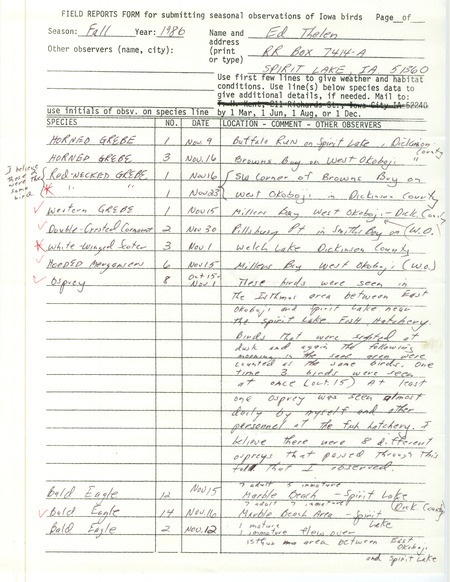 FIELD REPORTS FORM for submitting seasonal observations of Iowa birds Page__of__
Season: Fall Year: 1986 Name and Ed Thelen
Other observers (name, city): address RR Box 7414-A
(print or type) SPIRIT LAKE, IA 51360
Use first few lines to give weather and habitat
conditions. Use line(s) below species data to
give additional details, if needed. Mail to:
T. H. Kent, 211 Richards St., Iowa City IA 52240
use initials of obsv. on species line by 1 Mar, 1 Jun, 1 Aug, or 1 Dec.
SPECIES NO. DATE LOCATION - COMMENT - OTHER OBSERVERS
HORNED GREBE 1 Nov. 9 Buffalo Run on Spirit Lake, Dickinson County
HORNED GREBE 3 Nov. 16 Browns Bay on West Okoboji "
I believe these were the same bird
Red-necked GREBE 1 Nov 16 SW corner of Browns Bay on
" 1 Nov 23 West Okoboji in Dickinson County
Western GREBE 1 Nov 15 Millers Bay West Okoboji - Dick. County
Double-Crested Cormorant 2 Nov 30 Pillsbury Pt. in Smiths Bay on (W.O.)
White Winged Scoter 3 Nov. 1 Welch Lake Dickinson County
Hooded Mergansers 6 Nov 15 Millers Bay West Okoboji (W.O.)
Osprey 8 Oct 15- Nov. 1 These birds were seen in
the Isthmus area between East
Okoboji and Spirit Lake near
the Spirit Lake Fish Hatchery.
Birds that were spotted at
dusk and again the following
morning in the same area were
counted as the same birds. One
time 3 birds were seen
at once (Oct. 15) At least
one Osprey was seen almost
daily by myself and other
personnel at the fish hatchery. I
believe there were 8 different
ospreys that passed through this
fall that I observed.
adult 5 immature
Bald Eagle 12 Nov 15 Marble Beach - Spirit Lake
adult immature (Dick. County)
Bald Eagle 14 Nov. 16 Marble Beach Area - Spirit Lake
1 mature
Bald Eagle 2 Nov. 12 1 immature flew over
isthmus area between East Okoboji
and Spirit Lake